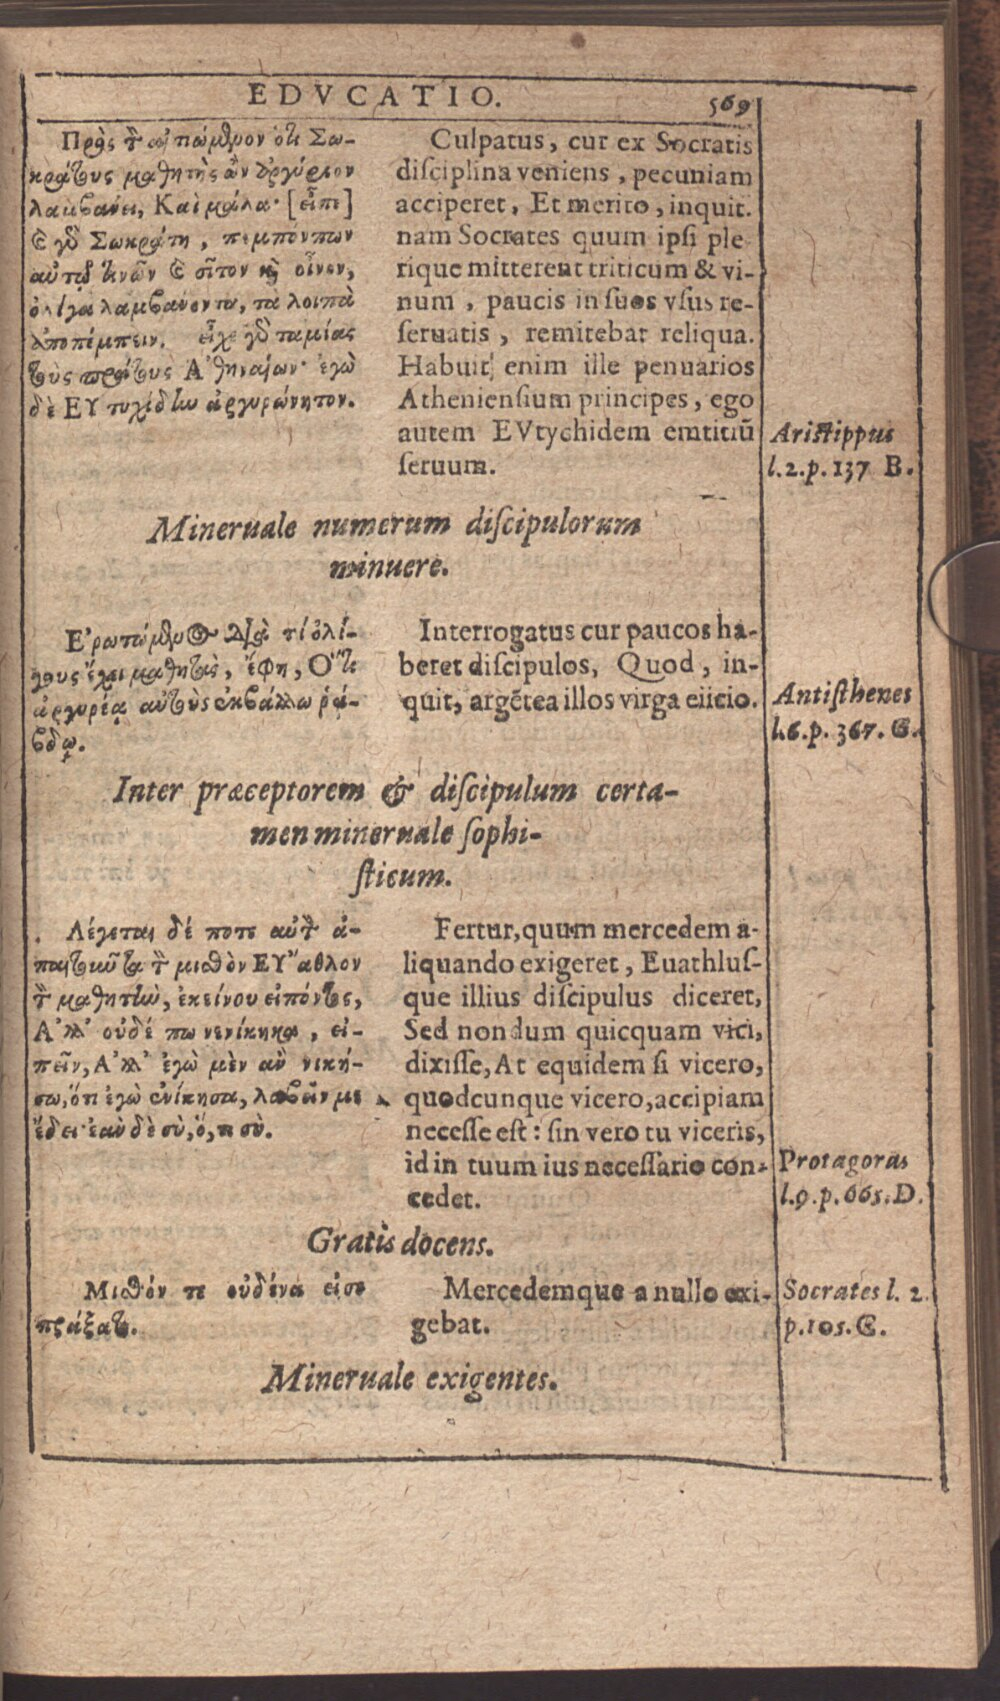 EDVCATIO.
569
Πρὸς τὸν αἰτιώμενον ὅτι Σω-
κράτους μαθητὴς ὢν ἀργύριον
λαμβάνει, Καὶ μάλα· [εἶπε]
καὶ γὰρ Σωκράτη, πεμπόντων
αὐτῷ τινῶν καὶ σῖτον καὶ οἶνον,
ὀλίγα λαμβάνοντα, τὰ λοιπὰ
ἀποπέμπειν. εἶχε γὰρ ταμίας
τοὺς πρώτους Ἀθηναίων· ἐγὼ
δὲ ΕΥτυχίδην ἀργυρώνητον.
Culpatus, cur ex Socratis
diſciplina veniens, pecuniam
acciperet, Et merito, inquit.
nam Socrates quum ipſi ple
rique mitterent triticum & vi-
num, paucis in ſuos vſus re-
ſeruatis, remitebat reliqua.
Habuit enim ille penuarios
Athenienſium principes, ego
autem EVtychidem emtitiũ
ſeruum.
Ariſtippus
l.2.p.137 B.
Mineruale numerum diſcipulorum
minuere.
Ἐρωτώμενος διὰ τί ὀλί-
γους ἔχει μαθητὰς, ἔφη, Ὅτι
ἀργυρέᾳ αὐτοὺς ἐκβάλλω ῥά-
βδῳ.
Interrogatus cur paucos ha-
beret diſcipulos, Quod, in-
quit, argẽtea illos virga eiicio.
Antiſthenes
l.6.p.367.C.
Inter præceptorem & diſcipulum certa-
men mineruale ſophi-
ſticum.
Λέγεται δέ ποτε αὐτὸν ἀ-
παιτοῦντα τὸν μισθὸν ΕΥ̓́αθλον
τὸν μαθητὴν, ἐκείνου εἰπόντος,
Ἀλλ' οὐδέπω νενίκηκα, εἰ-
πεῖν, Ἀλλ' ἐγὼ μὲν ἂν νική-
σω, ὅτι ἐγὼ ἐνίκησα, λαβεῖν με
ἔδει· ἐὰν δὲ σὺ, ὅ, τι σὺ.
Fertur, quum mercedem a-
liquando exigeret, Euathluſ-
que illius diſcipulus diceret,
Sed nondum quicquam vici,
dixiſſe, At equidem ſi vicero,
quodcunque vicero, accipiam
neceſſe eſt: ſin vero tu viceris,
id in tuum ius neceſſario con-
cedet.
Protagoras
l.9.p.665.D.
Gratis docens.
Μισθόν τε οὐδένα εἰσε
πράξατο.
Mercedemque a nullo exi-
gebat.
Socrates l. 2.
p.105.C.
Mineruale exigentes.